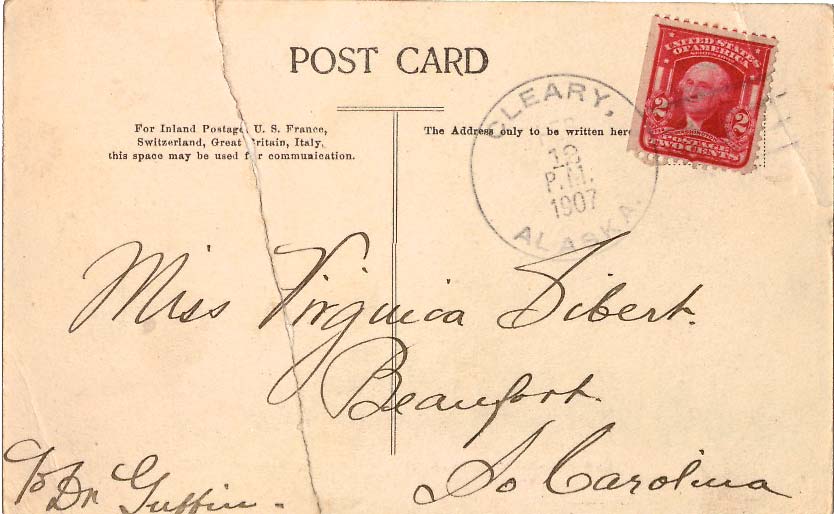 POST CARD
For Inland Postage, U. S. France,
Switzerland, Great Britain, Italy,
this space may be used for commuication.
The Address only to be written here
CLEARY,
18
P.M.
1907
ALASKA.
UNITED STATES
OF AMERICA
2 2
POSTAGE
TWO CENTS
Miss Virginica Sibert.
Beaufort.
So Carolina
c/o Dr Guffin.